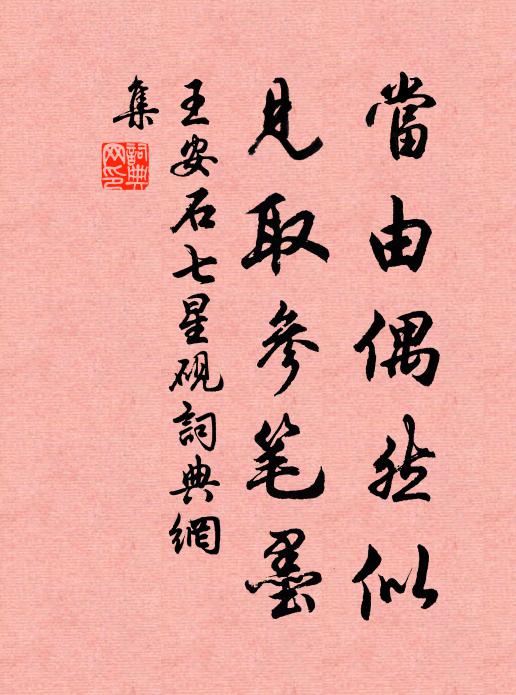 當由偶然似
見取參笔墨
王安石七星硯詞典網
集
詞典網印